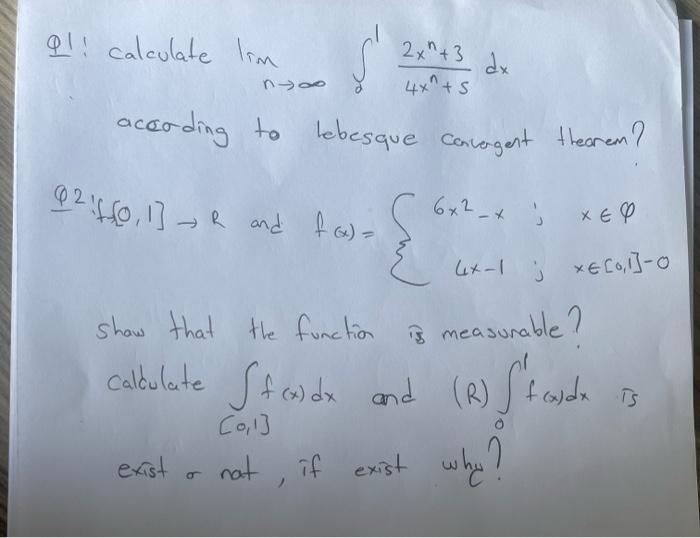 Q1: calculate lim n→∞ ∫₀¹ (2xⁿ+3)/(4xⁿ+5) dx
according to lebesque convergent thearem?
Q2: f:[0,1] → R and f(x) = { 6x²-x ; x∈φ
4x-1 ; x∈[0,1]-0
show that the function is measurable?
calculate ∫[0,1] f(x)dx and (R) ∫₀¹ f(x)dx is
exist or nat, if exist why?